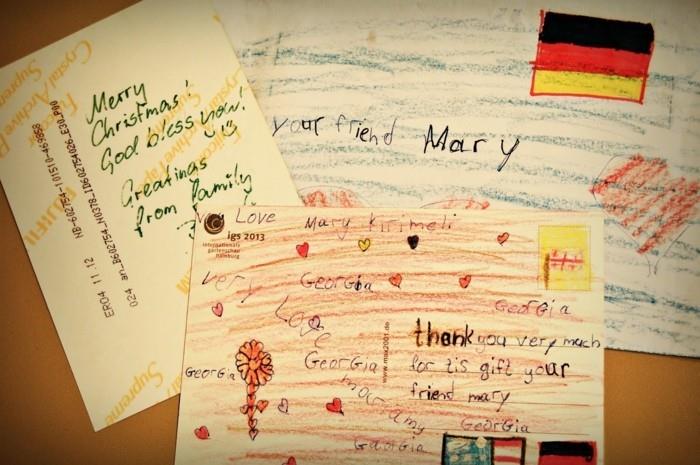 Merry
Christmas!
God bless you!
Greatings
from family
NB-602754-10151-0-469958
024 an_B602754.N0378_ID602754026_E30.P00
ER04 11 .12
your friend Mary
Love Mary Kirimeli
igs 2013
internationale
gartenschau
hamburg
very Georgia
Georgia
Love
www.max2001.de
thank you very much
for tis gift your
friend mary
Georgia
Georgia
mariamy
Georgia
Georgia
Supreme
Crystal Archive
Supreme